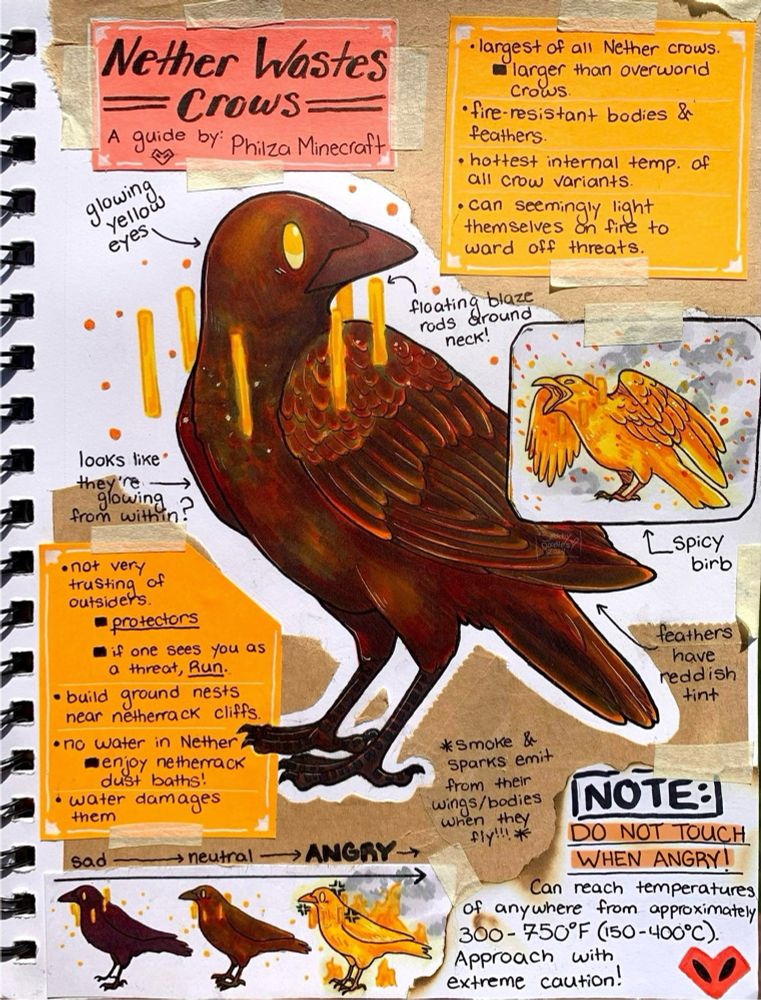 Nether Wastes
Crows
A guide by: Philza Minecraft
• largest of all Nether crows.
■ larger than overworld
crows.
• fire-resistant bodies &
feathers.
• hottest internal temp. of
all crow variants.
• can seemingly light
themselves on fire to
ward off threats.
glowing
yellow
eyes
floating blaze
rods around
neck!
looks like
they're
glowing
from within?
spicy
birb
• not very
trusting of
outsiders.
■ protectors
■ if one sees you as
a threat, Run.
• build ground nests
near netherrack cliffs.
• no water in Nether
■ enjoy netherrack
dust baths!
• water damages
them
feathers
have
reddish
tint
*smoke &
sparks emit
from their
wings/bodies
when they
fly!!! *
sad → neutral → ANGRY →
NOTE:
DO NOT TOUCH
WHEN ANGRY!
Can reach temperatures
of anywhere from approximately
300-750°F (150-400°C).
Approach with
extreme caution!